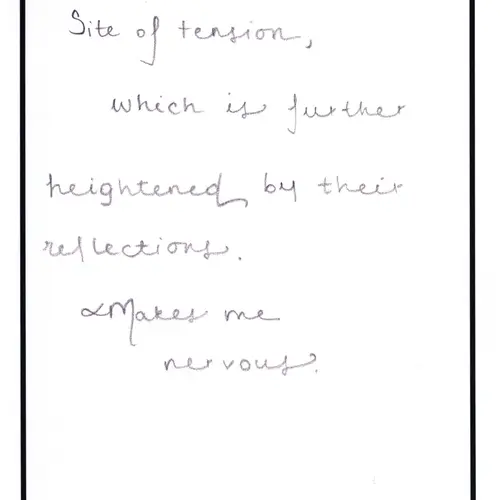 Site of tension,
which is further
heightened by their
reflections.
∝Makes me
nervous.